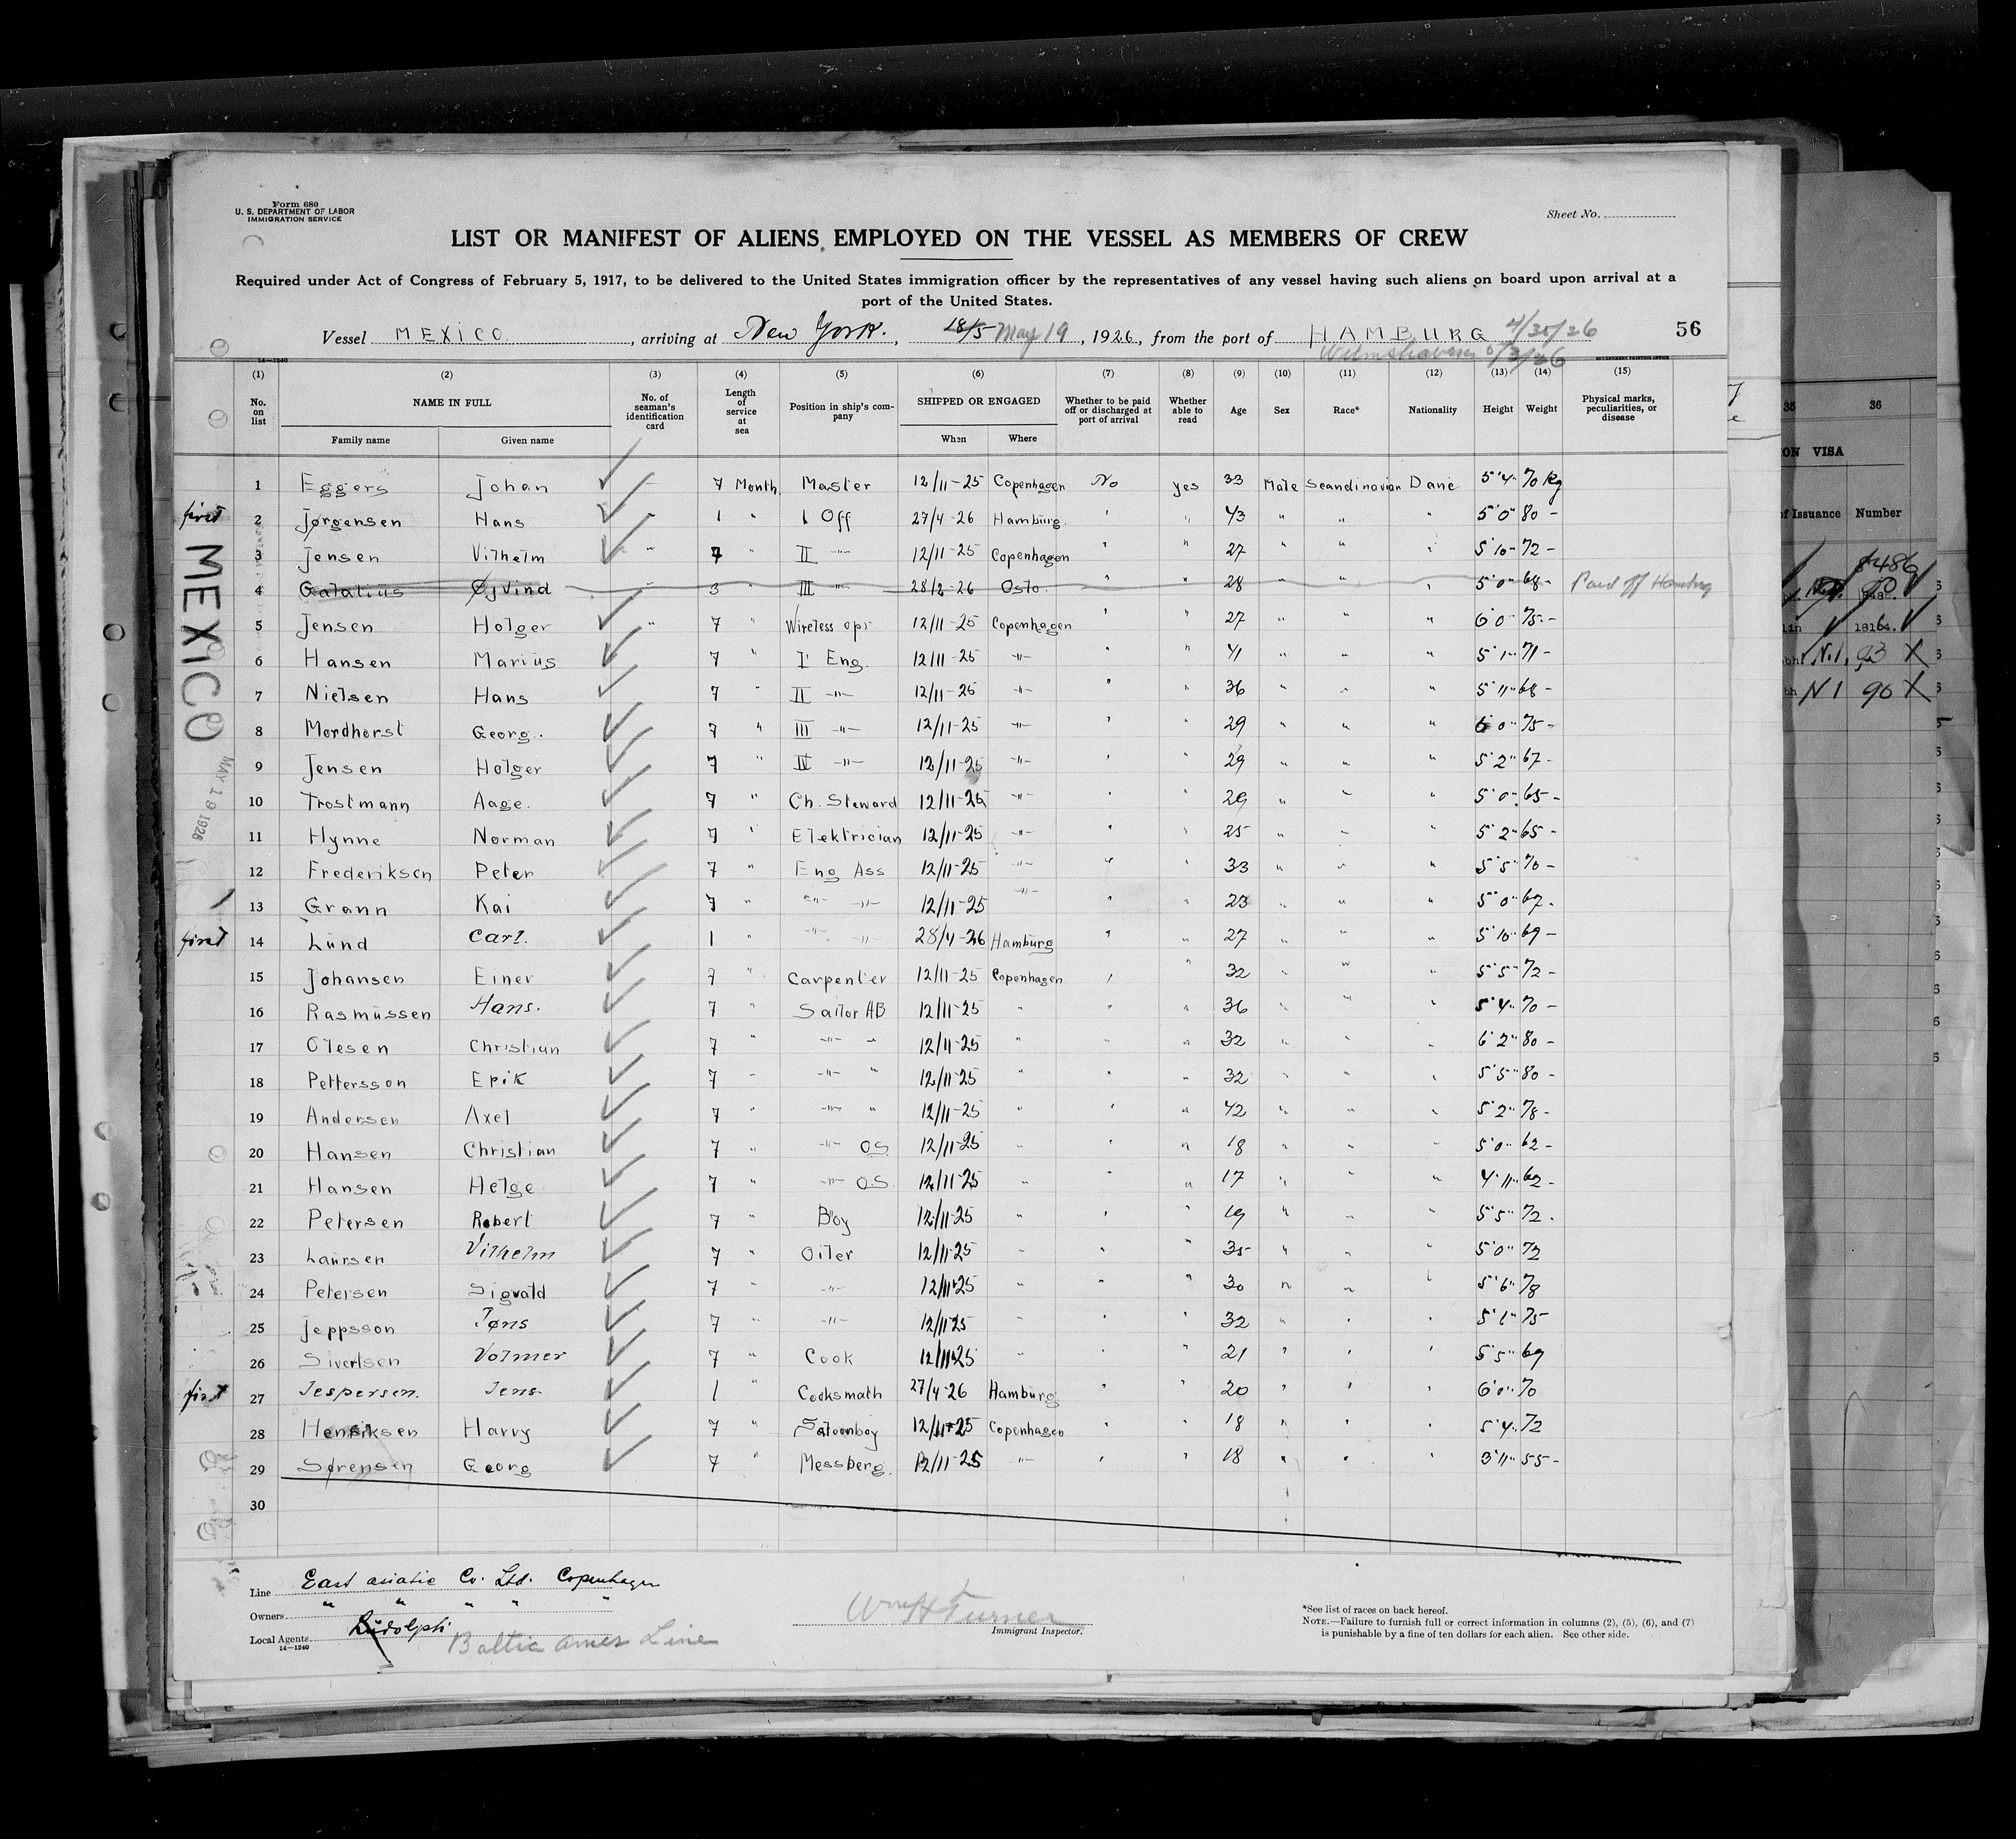 Form 680
U. S. DEPARTMENT OF LABOR
IMMIGRATION SERVICE
Sheet No.
LIST OR MANIFEST OF ALIENS EMPLOYED ON THE VESSEL AS MEMBERS OF CREW
Required under Act of Congress of February 5, 1917, to be delivered to the United States immigration officer by the representatives of any vessel having such aliens on board upon arrival at a
port of the United States.
Vessel MEXICO, arriving at New York., 18/5 May 19, 1926, from the port of HAMBURG 4/30/26 56
14—1240
(1) (2) (3) (4) (5) (6) (7) (8) (9) (10) (11) (12) (13) (14) (15)
No. on list NAME IN FULL Family name Given name No. of seaman's identification card Length of service at sea Position in ship's company SHIPPED OR ENGAGED When Where Whether to be paid off or discharged at port of arrival Whether able to read Age Sex Race* Nationality Height Weight Physical marks, peculiarities, or disease
1 Eggers Johan 7 Month Master 12/11-25 Copenhagen No yes 33 Male Scandinavian Dane 5'4" 70 Kg
first 2 Jørgensen Hans 1 " 1 Off 27/4-26 Hamburg " " 43 " " " 5'0" 80 -
3 Jensen Vilhelm " 7 " II -"- 12/11-25 Copenhagen " " 27 " " " 5'10" 72 -
4 Øjvind 3 " III -"- 28/2-26 Oslo " " 28 " " " 5'0" 68 - Paid off Hamburg
5 Jensen Holger " 7 " Wireless opr 12/11-25 Copenhagen " " 27 " " " 6'0" 75 -
6 Hansen Marius 7 " I Eng. 12/11-25 -"- " " 41 " " " 5'1" 71 -
7 Nielsen Hans 7 " II -"- 12/11-25 -"- " " 36 " " " 5'11" 68 -
8 Mordhorst Georg. 7 " III -"- 12/11-25 -"- " " 29 " " " 6'0" 75 -
9 Jensen Holger 7 " IV -"- 12/11-25 -"- " " 29 " " " 5'2" 67 -
10 Trostmann Aage. 7 " Ch. Steward 12/11-25 -"- " " 29 " " " 5'0" 65 -
11 Hynne Norman 7 " Elektrician 12/11-25 -"- " " 25 " " " 5'2" 65 -
12 Frederiksen Peter 7 " Eng Ass 12/11-25 -"- " " 33 " " " 5'5" 70 -
13 Grann Kai 7 " -"- -"- 12/11-25 -"- " " 23 " " " 5'0" 67 -
first 14 Lund Carl. 1 " -"- -"- 28/4-26 Hamburg " " 27 " " " 5'10" 69 -
15 Johansen Einer 7 " Carpenter 12/11-25 Copenhagen " " 32 " " " 5'5" 72 -
16 Rasmussen Hans. 7 " Sailor AB 12/11-25 " " " 36 " " " 5'4" 70 -
17 Olesen Christian 7 " -"- " 12/11-25 " " " 32 " " " 6'2" 80 -
18 Pettersson Erik 7 " -"- " 12/11-25 " " " 32 " " " 5'5" 80 -
19 Andersen Axel 7 " -"- " 12/11-25 " " " 42 " " " 5'2" 78 -
20 Hansen Christian 7 " -"- O.S. 12/11-25 " " " 18 " " " 5'0" 62 -
21 Hansen Helge 7 " -"- O.S. 12/11-25 " " " 17 " " " 4'11" 62 -
22 Petersen Robert 7 " Boy 12/11-25 " " " 19 " " " 5'5" 72 -
23 Laursen Vilhelm 7 " Oiler 12/11-25 " " " 35 " " " 5'0" 72
24 Petersen Sigvald 7 " -"- 12/11-25 " " " 30 " " " 5'6" 78
25 Jeppsson Tøns 7 " -"- 12/11-25 " " " 32 " " " 5'1" 75
26 Sivertsen Volmer 7 " Cook 12/11-25 " " " 21 " " " 5'5" 69
first 27 Jespersen. Jens 1 " Cooksmath 27/4-26 Hamburg " " 20 " " " 6'0" 70
28 Henriksen Harry 7 " Saloonboy 12/11-25 Copenhagen " " 18 " " " 5'4" 72
29 Sørensen Georg 7 " Messberg. 12/11-25 -"- " " 18 " " " 3'11" 55 -
30
MEXICO
MAY 19 1926
Line East asiatic Co. Ltd. Copenhagen
Owners " " " " "
Local Agents Rudolph Baltic Amer Line
14—1240
Wm H Turner
Immigrant Inspector.
*See list of races on back hereof.
NOTE.—Failure to furnish full or correct information in columns (2), (5), (6), and (7)
is punishable by a fine of ten dollars for each alien. See other side.
35 36
ON VISA
of Issuance Number
8486
90
lin 18164.
N.1. 93 X
N 1 90 X